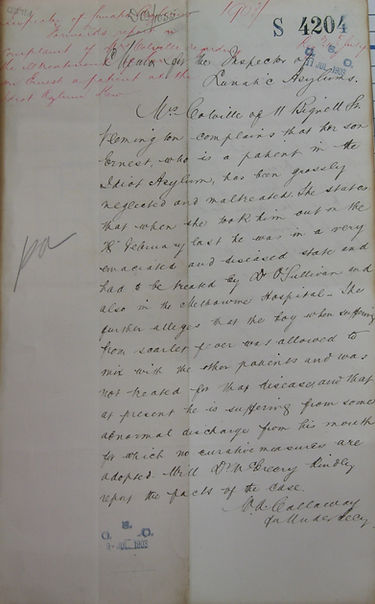 S 4204
C. S. O.
11 JUL 1903
the Inspector of
Lunatic Asylums.
Mrs Colville of 11 Bignell St
Flemington complains that her son
Ernest, who is a patient in the
Idiot Asylum, has been grossly
neglected and maltreated. She states
that when she took him out on the
February last he was in a very
emaciated and diseased state and
had to be treated by Dr O'Sullivan and
also in the Melbourne Hospital. She
further alleges that the boy when suffering
from scarlet fever was allowed to
mix with the other patients and was
not treated for that disease, and that
at present he is suffering from some
abnormal discharge from his mouth
for which no curative measures are
adopted. Will Dr McCreery kindly
report the facts of the case.
Callaway
for Under Secy.
C. S. O.
JUL 1903